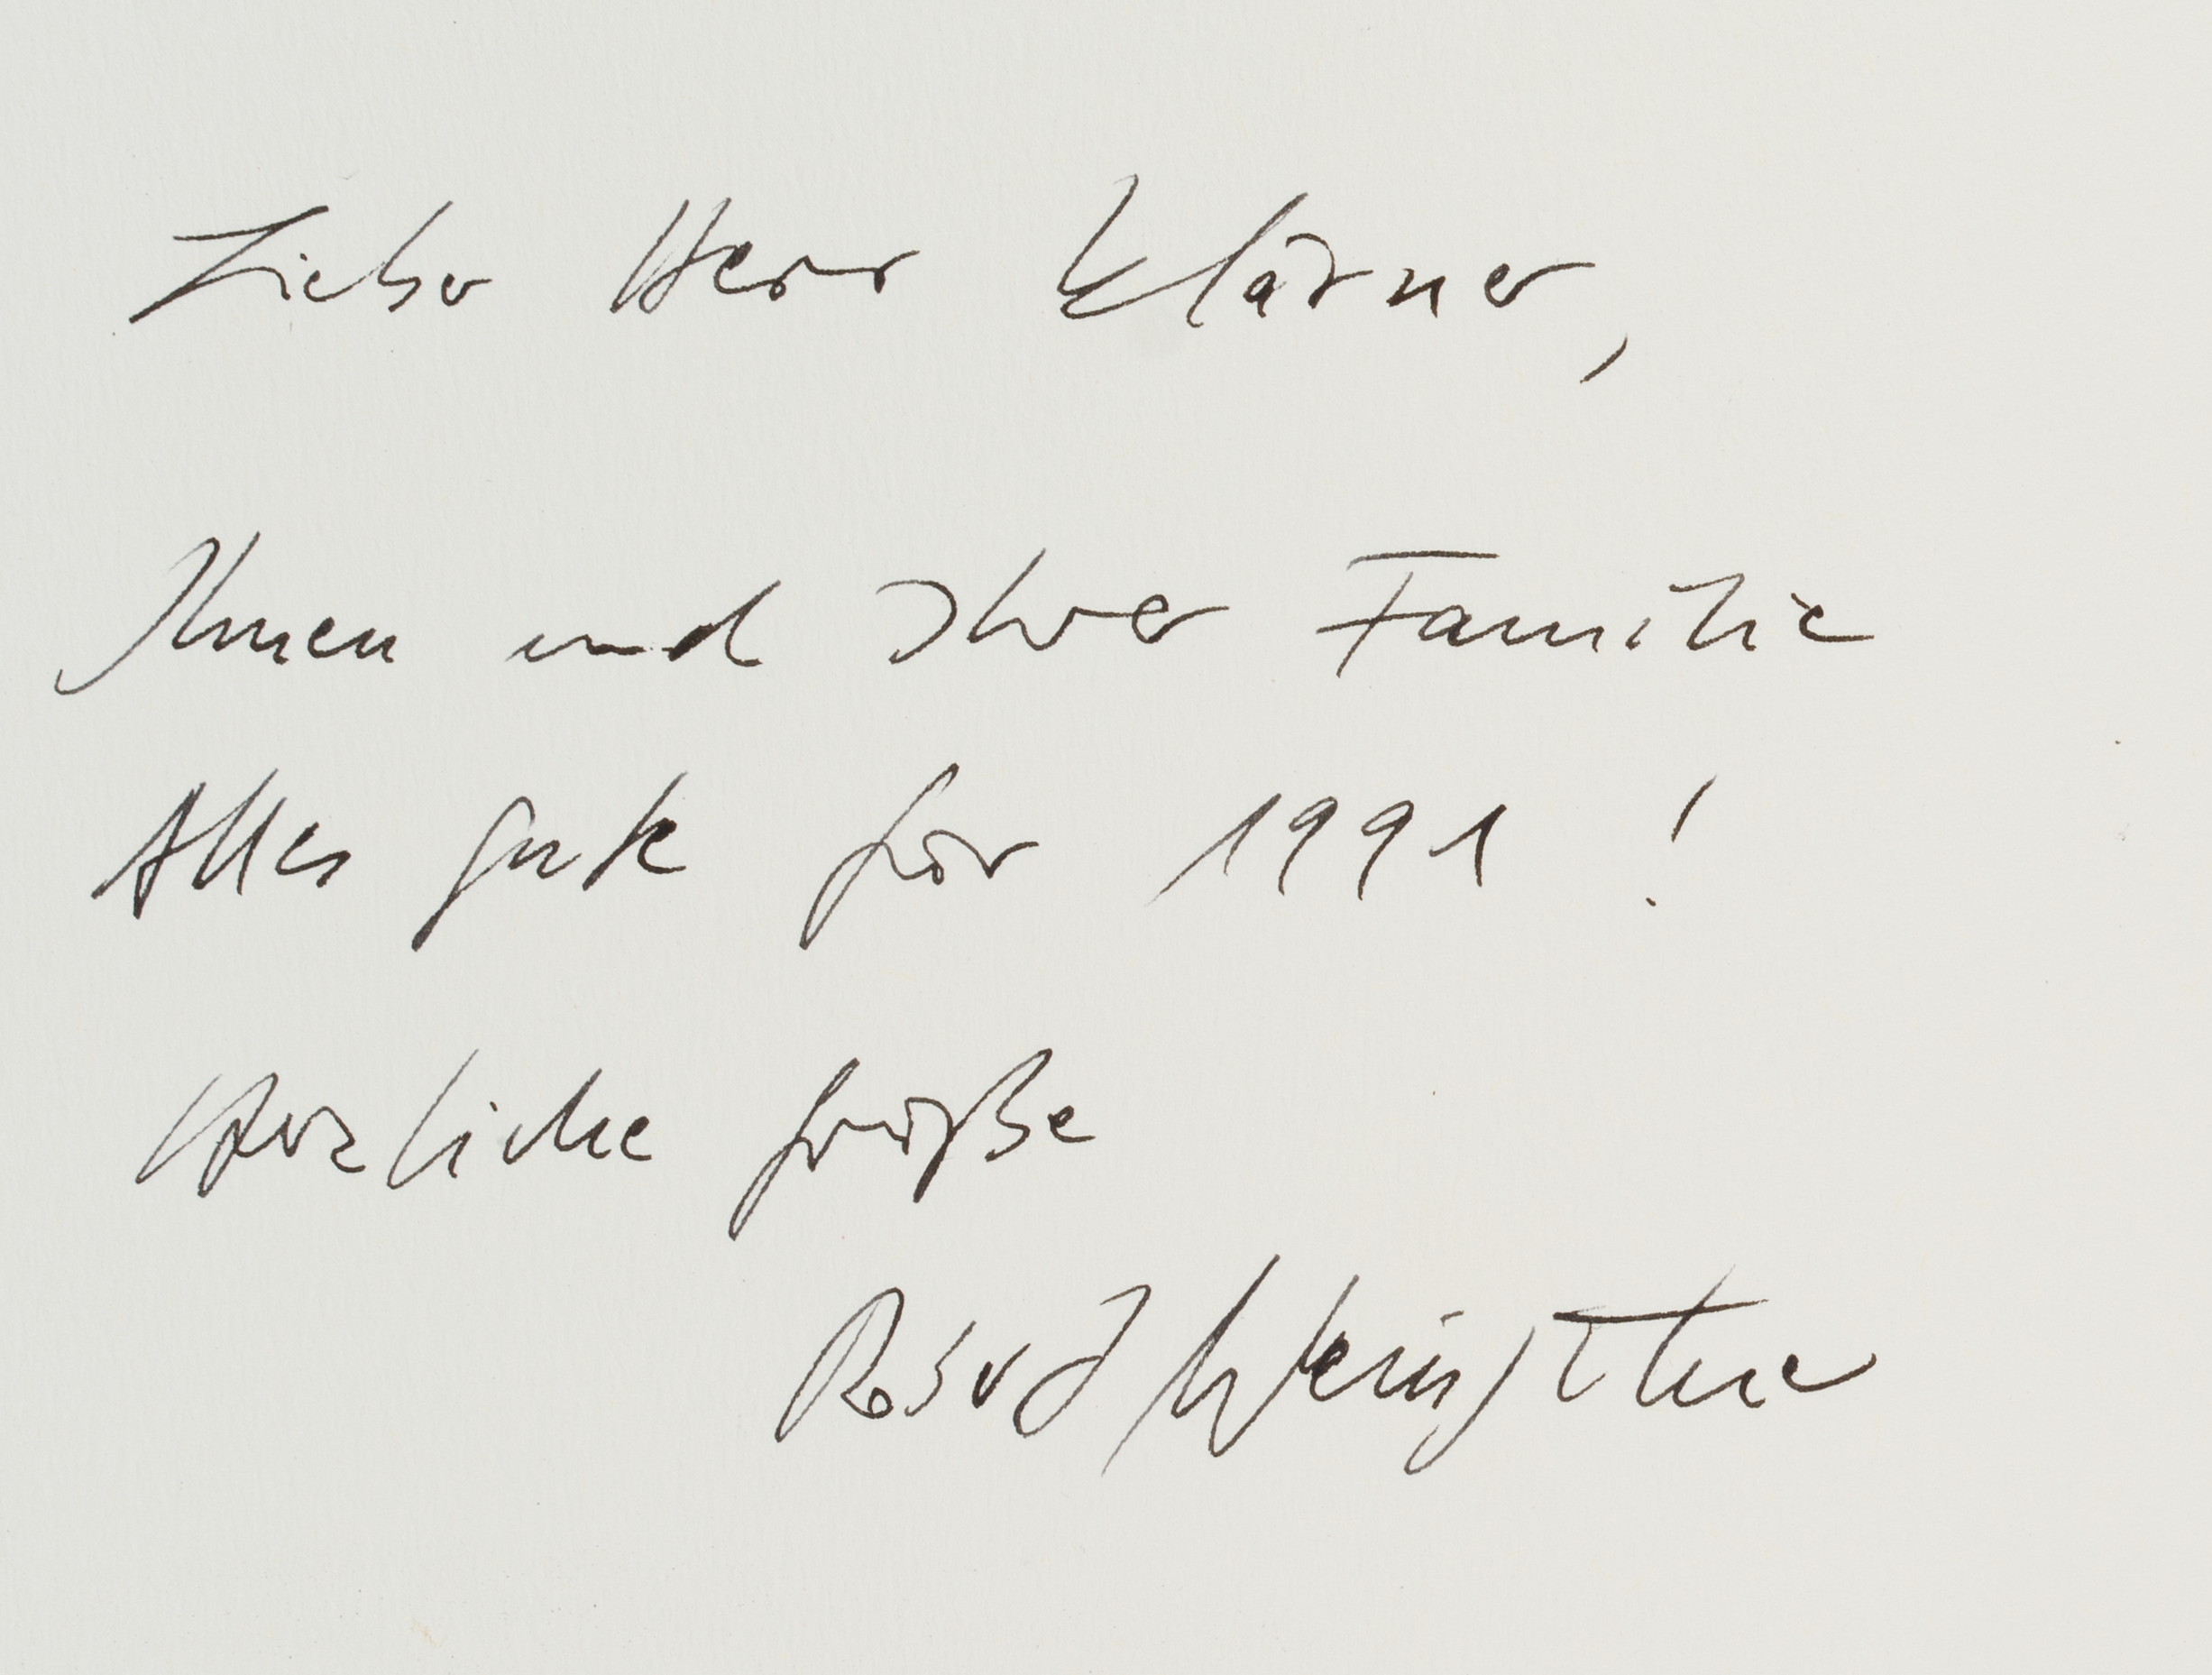 Lieber Herr Klärner,
Ihnen und Ihrer Familie
Alles gute für 1991 !
Herzliche Grüße